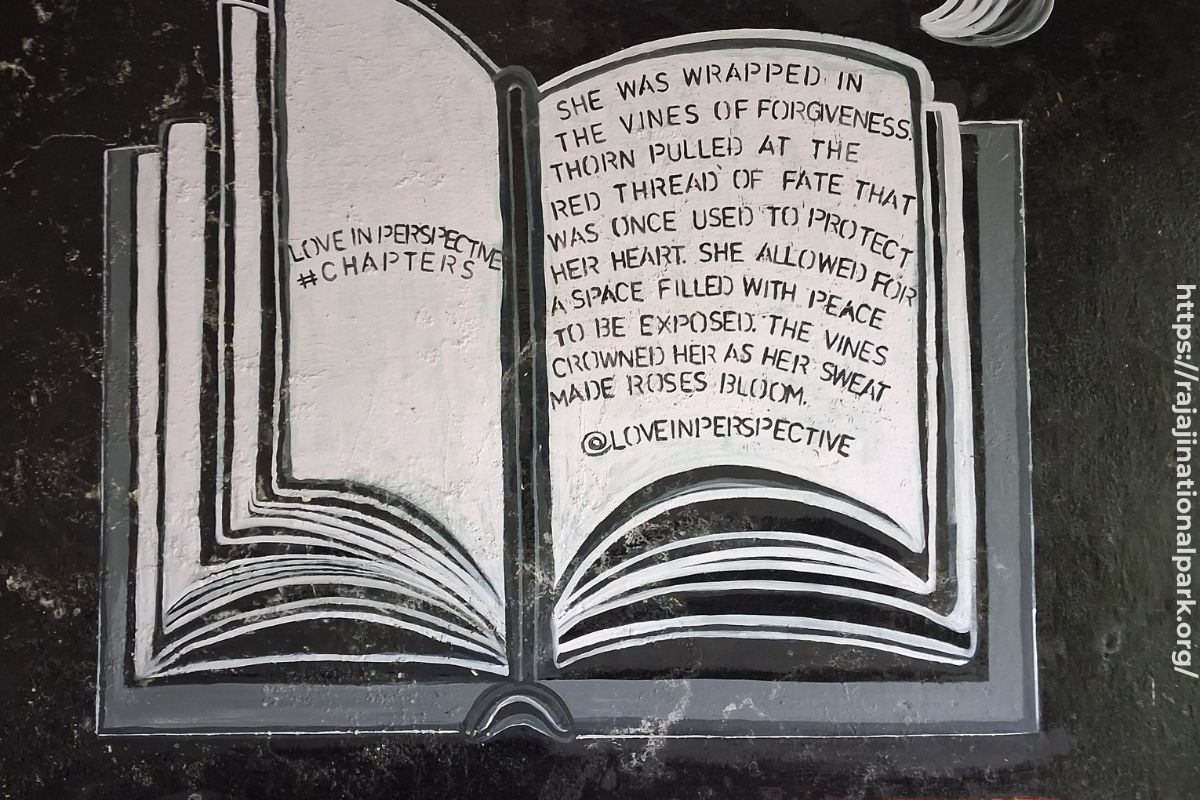 LOVE IN PERSPECTIVE
#CHAPTERS
SHE WAS WRAPPED IN
THE VINES OF FORGIVENESS.
THORN PULLED AT THE
RED THREAD OF FATE THAT
WAS ONCE USED TO PROTECT
HER HEART. SHE ALLOWED FOR
A SPACE FILLED WITH PEACE
TO BE EXPOSED. THE VINES
CROWNED HER AS HER SWEAT
MADE ROSES BLOOM.
@LOVEINPERSPECTIVE
https://rajajinationalpark.org/